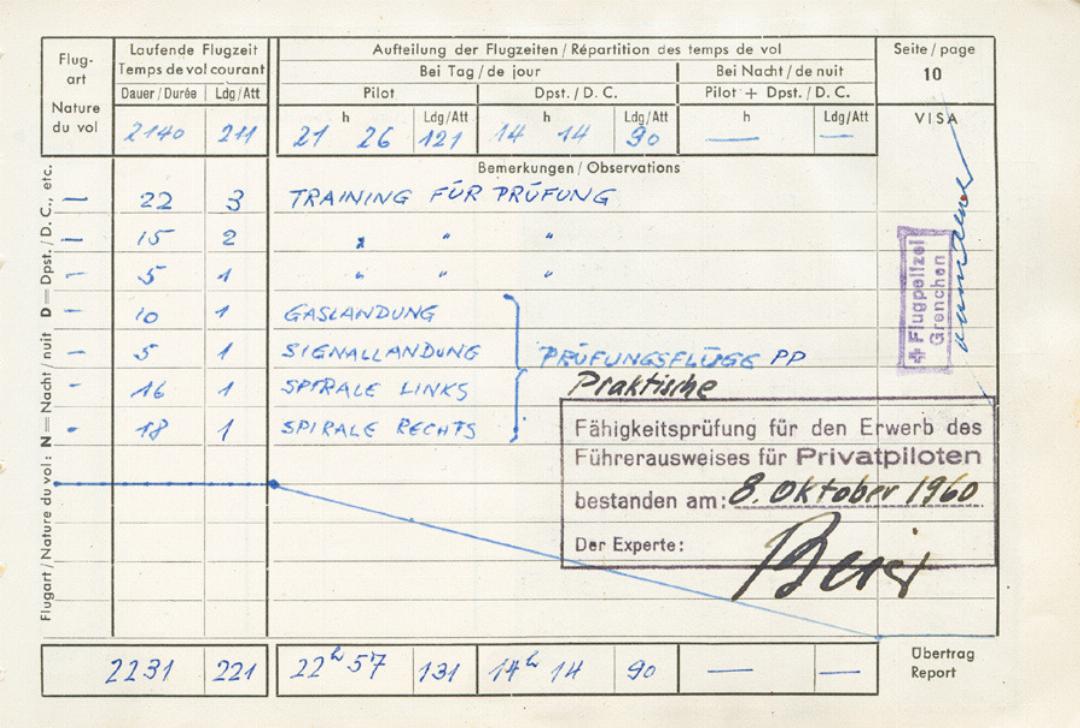 Flug-
art
Nature
du vol
Laufende Flugzeit
Temps de vol courant
Dauer/Durée Ldg/Att
2140 211
Aufteilung der Flugzeiten / Répartition des temps de vol
Bei Tag / de jour Bei Nacht / de nuit
Pilot Dpst. / D. C. Pilot + Dpst. / D. C.
h Ldg/Att h Ldg/Att h Ldg/Att
21 26 121 14 14 90 — —
Seite / page
10
VISA
Bemerkungen / Observations
— 22 3 TRAINING FÜR PRÜFUNG
— 15 2 " " "
— 5 1 " " "
— 10 1 GASLANDUNG
— 5 1 SIGNALLANDUNG
PRÜFUNGSFLÜGE PP
- 16 1 SPIRALE LINKS
- 18 1 SPIRALE RECHTS
Praktische
Fähigkeitsprüfung für den Erwerb des
Führerausweises für Privatpiloten
bestanden am: 8. Oktober 1960
Der Experte:
Flugpolizei
Grenchen
Flugart / Nature du vol: N = Nacht / nuit D = Dpst. / D. C., etc.
2231 221 22h 57 131 14h 14 90 — —
Übertrag
Report